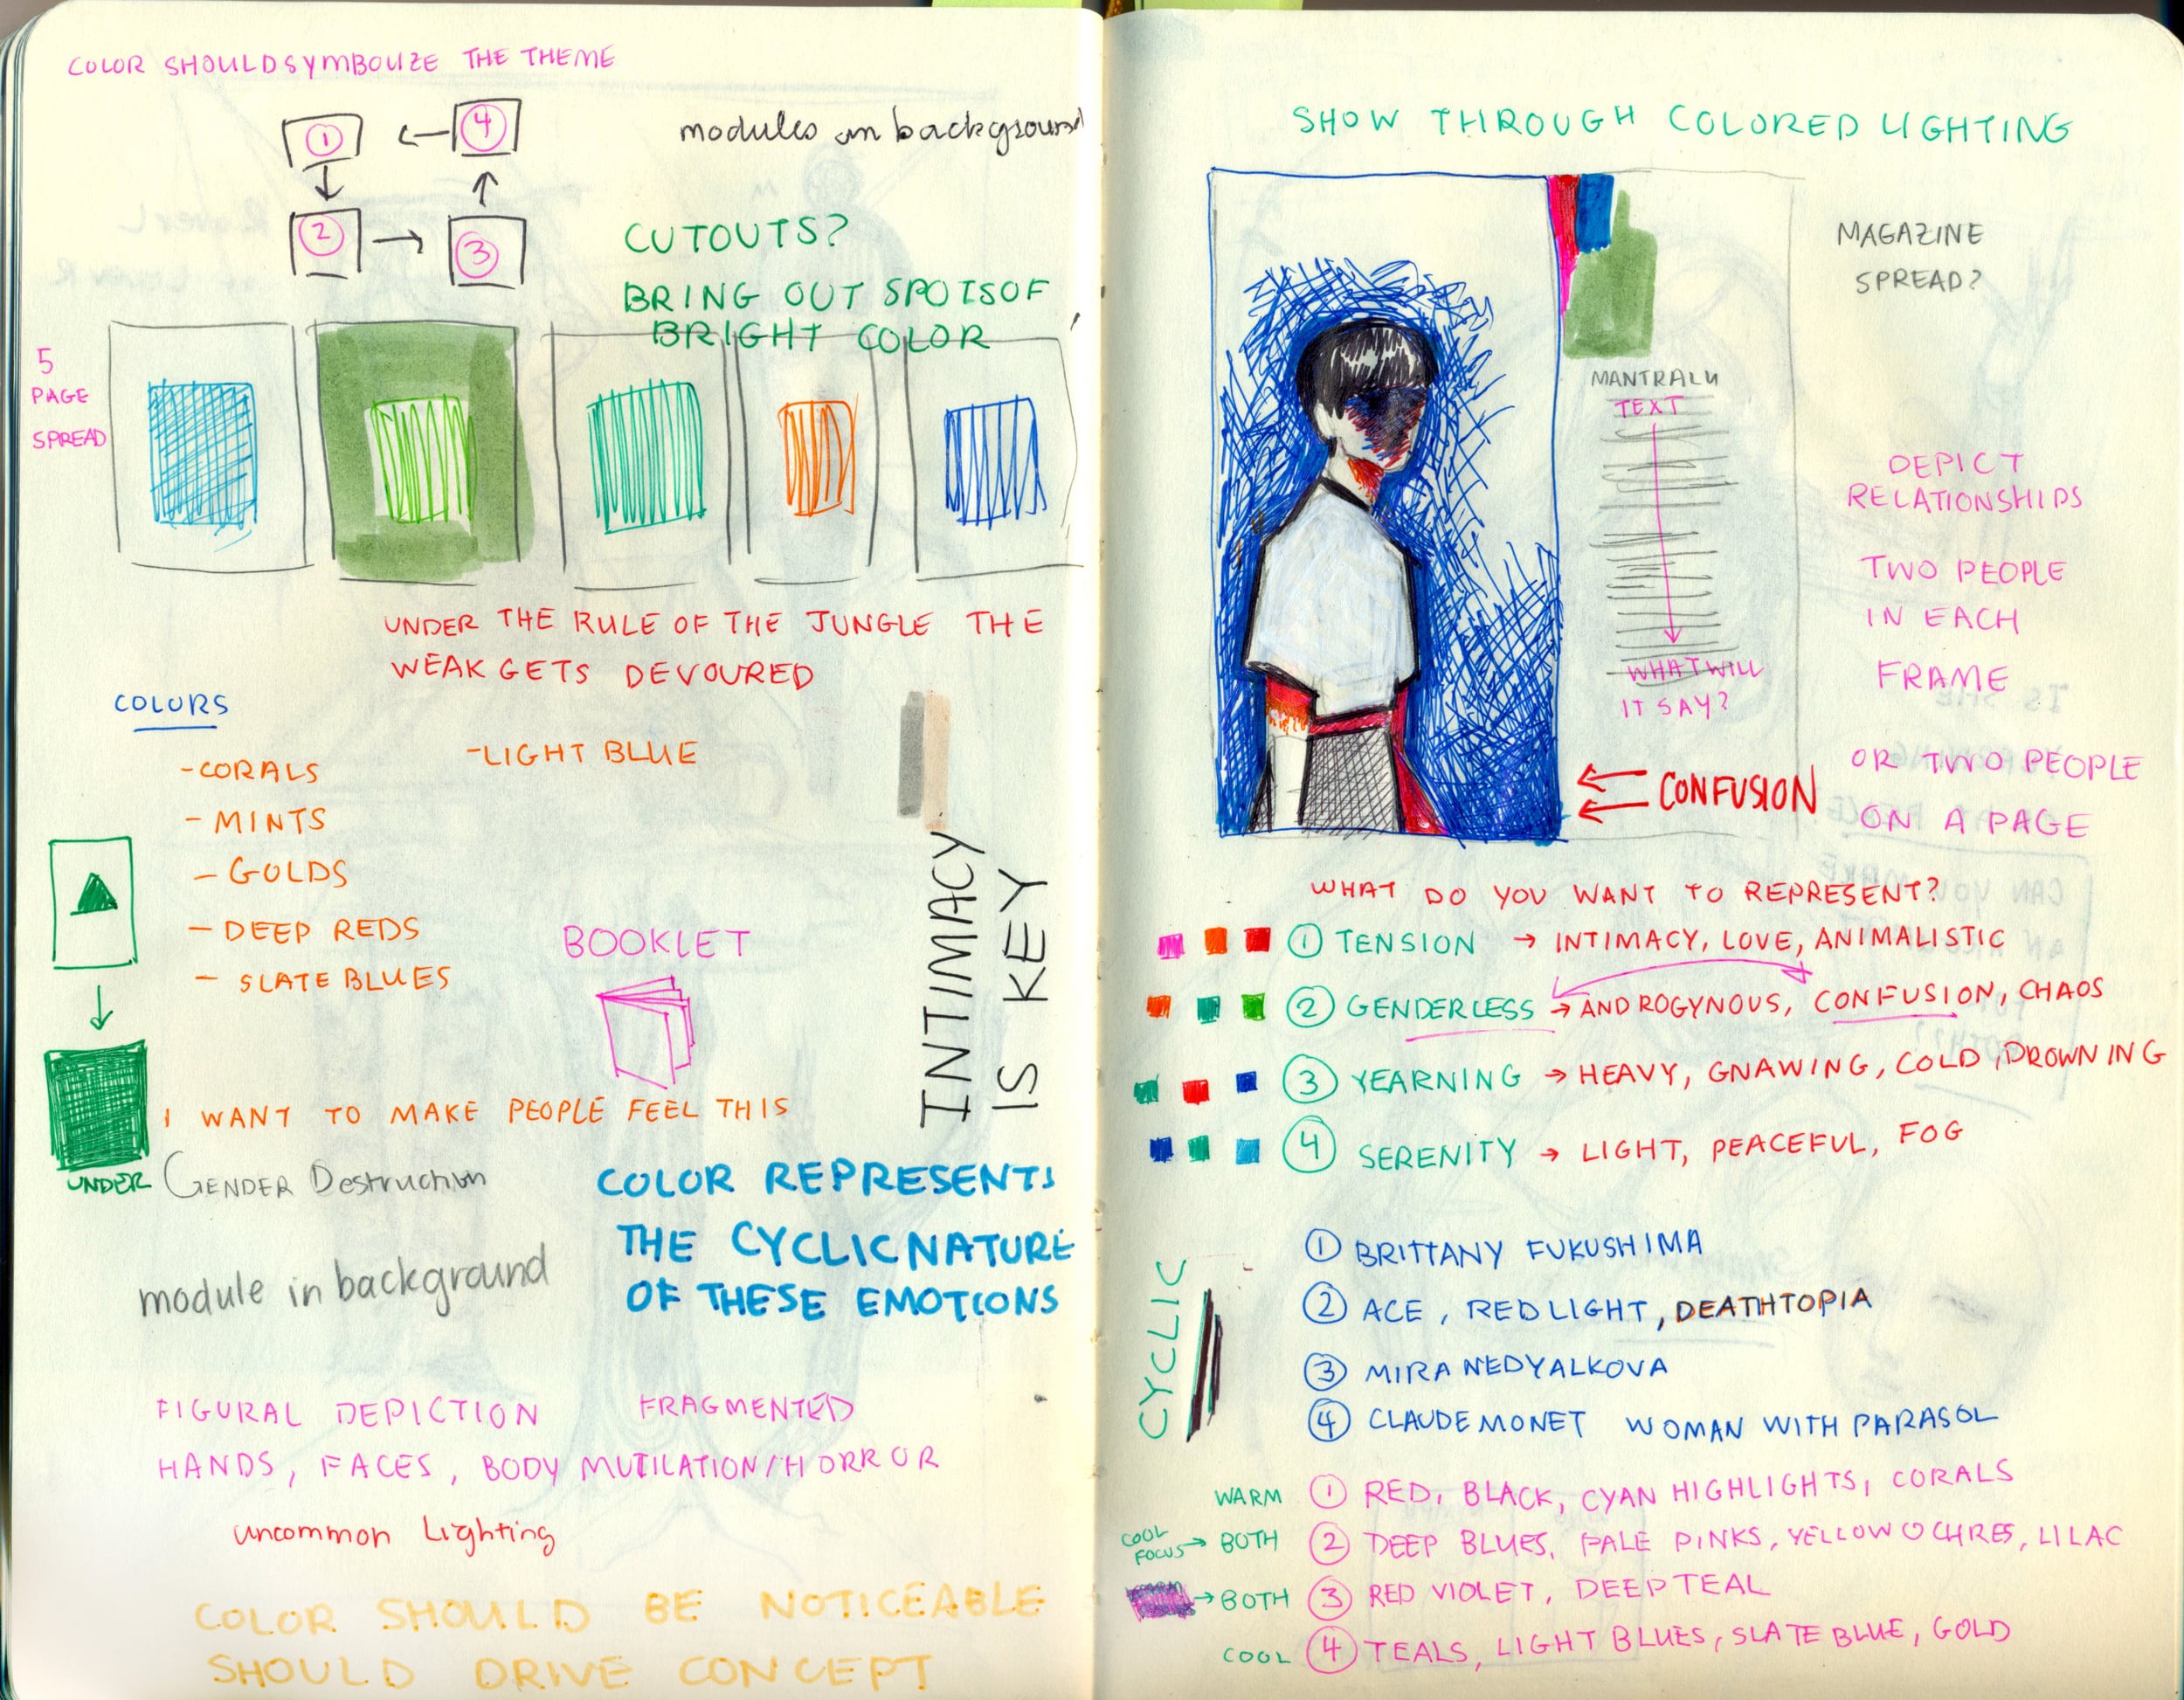 COLOR SHOULD SYMBOLIZE THE THEME
1
4
2
3
modules in background
CUTOUTS?
BRING OUT SPOTS OF
BRIGHT COLOR
5
PAGE
SPREAD
UNDER THE RULE OF THE JUNGLE THE
WEAK GETS DEVOURED
COLORS
-CORALS
- MINTS
- GOLDS
- DEEP REDS
- SLATE BLUES
-LIGHT BLUE
BOOKLET
INTIMACY
IS KEY
I WANT TO MAKE PEOPLE FEEL THIS
UNDER
GENDER Destruction
module in background
COLOR REPRESENTS
THE CYCLIC NATURE
OF THESE EMOTIONS
FIGURAL DEPICTION FRAGMENTED
HANDS, FACES, BODY MUTILATION/HORROR
uncommon Lighting
COLOR SHOULD BE NOTICEABLE
SHOULD DRIVE CONCEPT
SHOW THROUGH COLORED LIGHTING
MAGAZINE
SPREAD?
TEXT
WHAT WILL
IT SAY?
DEPICT
RELATIONSHIPS
TWO PEOPLE
IN EACH
FRAME
OR TWO PEOPLE
ON A PAGE
CONFUSION
WHAT DO YOU WANT TO REPRESENT?
1 TENSION → INTIMACY, LOVE, ANIMALISTIC
2 GENDERLESS → ANDROGYNOUS, CONFUSION, CHAOS
3 YEARNING → HEAVY, GNAWING, COLD, DROWNING
4 SERENITY → LIGHT, PEACEFUL, FOG
CYCLIC
1 BRITTANY FUKUSHIMA
2 ACE, RED LIGHT, DEATHTOPIA
3 MIRA NEDYALKOVA
4 CLAUDE MONET WOMAN WITH PARASOL
WARM 1 RED, BLACK, CYAN HIGHLIGHTS, CORALS
COOL
FOCUS → BOTH 2 DEEP BLUES, PALE PINKS, YELLOW OCHRES, LILAC
→ BOTH 3 RED VIOLET, DEEP TEAL
COOL 4 TEALS, LIGHT BLUES, SLATE BLUE, GOLD